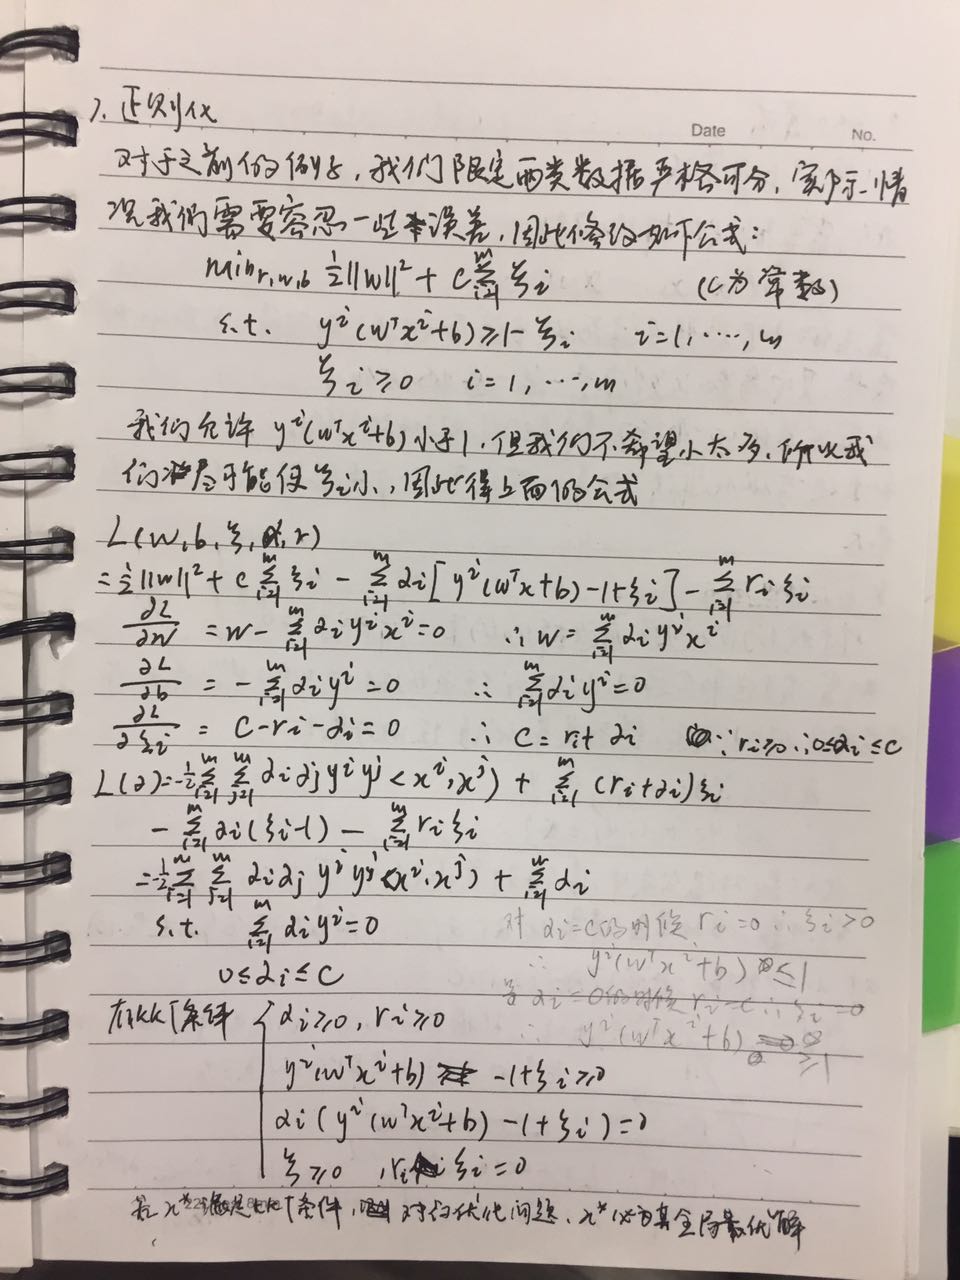 7. 正则化
Date No.
对于之前的例子，我们限定两类数据严格可分，实际情
况我们需要容忍一些误差，因此修改如下公式：
min r,w,b ½||w||² + C Σ_{i=1}^m ξi (C为常数)
s.t. y^i(w^T x^i+b) ≥ 1-ξi i=1,……,m
ξi ≥ 0 i=1,…,m
我们允许 y^i(w^T x^i+b) 小于1，但我们不希望小太多，所以我
们尽可能使ξi小，因此得上面的公式
L(w,b,ξ,α,r)
= ½||w||² + C Σ_{i=1}^m ξi - Σ_{i=1}^m αi[y^i(w^T x+b)-1+ξi] - Σ_{i=1}^m ri ξi
∂L/∂w = w - Σ_{i=1}^m αi y^i x^i = 0 ∴ w = Σ_{i=1}^m αi y^i x^i
∂L/∂b = - Σ_{i=1}^m αi y^i = 0 ∴ Σ_{i=1}^m αi y^i = 0
∂L/∂ξi = C - ri - αi = 0 ∴ C = ri + αi ∵ ri≥0 ∴ 0≤αi≤C
L(α) = -½ Σ_{i=1}^m Σ_{j=1}^m αi αj y^i y^j <x^i, x^j) + Σ_{i=1}^m (ri+αi)ξi
- Σ_{i=1}^m αi(ξi-1) - Σ_{i=1}^m ri ξi
= -½ Σ_{i=1}^m Σ_{j=1}^m αi αj y^i y^j <x^i, x^j) + Σ_{i=1}^m αi
s.t. Σ_{i=1}^m αi y^i = 0
对 αi=C的时候 ri=0 ∴ ξi>0
0≤αi≤C
∴ y^i(w^T x^i+b) ≤1
当 αi=0的时候 ri=C ∴ ξi=0
∴ y^i(w^T x^i+b) ≥1
有KKT条件 { αi≥0, ri≥0
y^i(w^T x^i+b) -1+ξi≥0
αi(y^i(w^T x^i+b) -1+ξi)=0
ξ≥0 , ri ξi=0
若x*满足KKT条件，对优化问题，x*必为其全局最优解